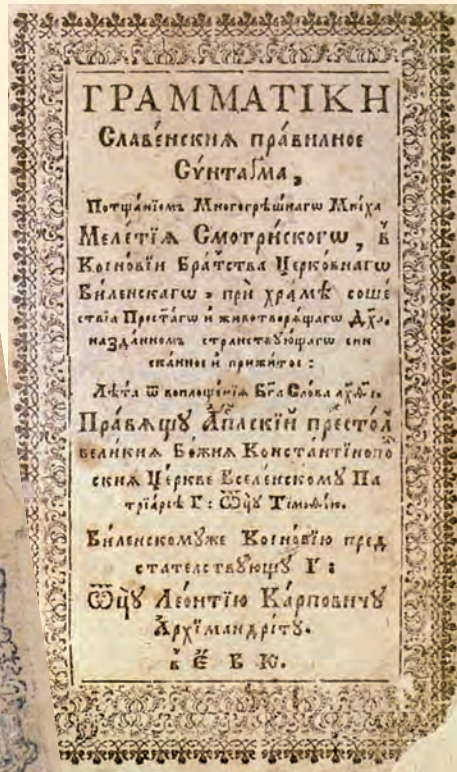 ГРАММАТІКИ
Славе́нскиѧ пра́вилное
Сѵ́нтаґма,
Потща́нїемъ Многогрѣ́шнагѡ Мни́ха
Меле́тїѧ Смотри́скогѡ, в
Коіно́вїи Бра́тства Церко́внагѡ
Ви́ленскагѡ, при́ хра́мѣ соше́
ствїа Прес҃та́гѡ и́ животворѧ́щагѡ Дх҃а,
назда́нномъ стра́нствꙋющагѡ сни
ска́нное и́ прижи́тое:
Лѣ́та ѿ воплоще́нїѧ Бг҃а Сло́ва
Пра́вѧщꙋ Ап҃лскїй престо́л
вели́кїѧ Бо́жїѧ Константїнопо
скиѧ Це́ркве Вселе́нскомꙋ Па
трїа́рсѣ Г: Ѿц҃ꙋ Тїмоѳе́ю.
Ви́ленскомꙋже Коіно́вїю пред
ста́телствꙋющꙋ Г:
Ѿц҃ꙋ Лео́нтїю Ка́рповичꙋ
А́рхїмандрі́тꙋ.
в Е́ В Ю.